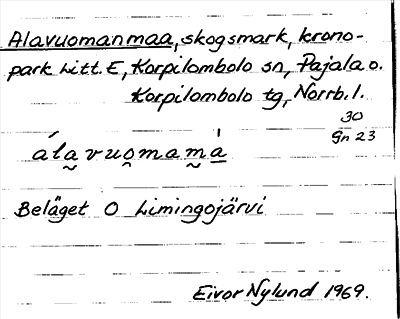 Alavuomanmaa, skogsmark, krono-
park Litt. E, Korpilombolo sn, Pajala o.
Korpilombolo tg, Norrb. l.
30
Gn 23
ála̰vuo̯mam̰á̱
Beläget O Limingojärvi
Eivor Nylund 1969.